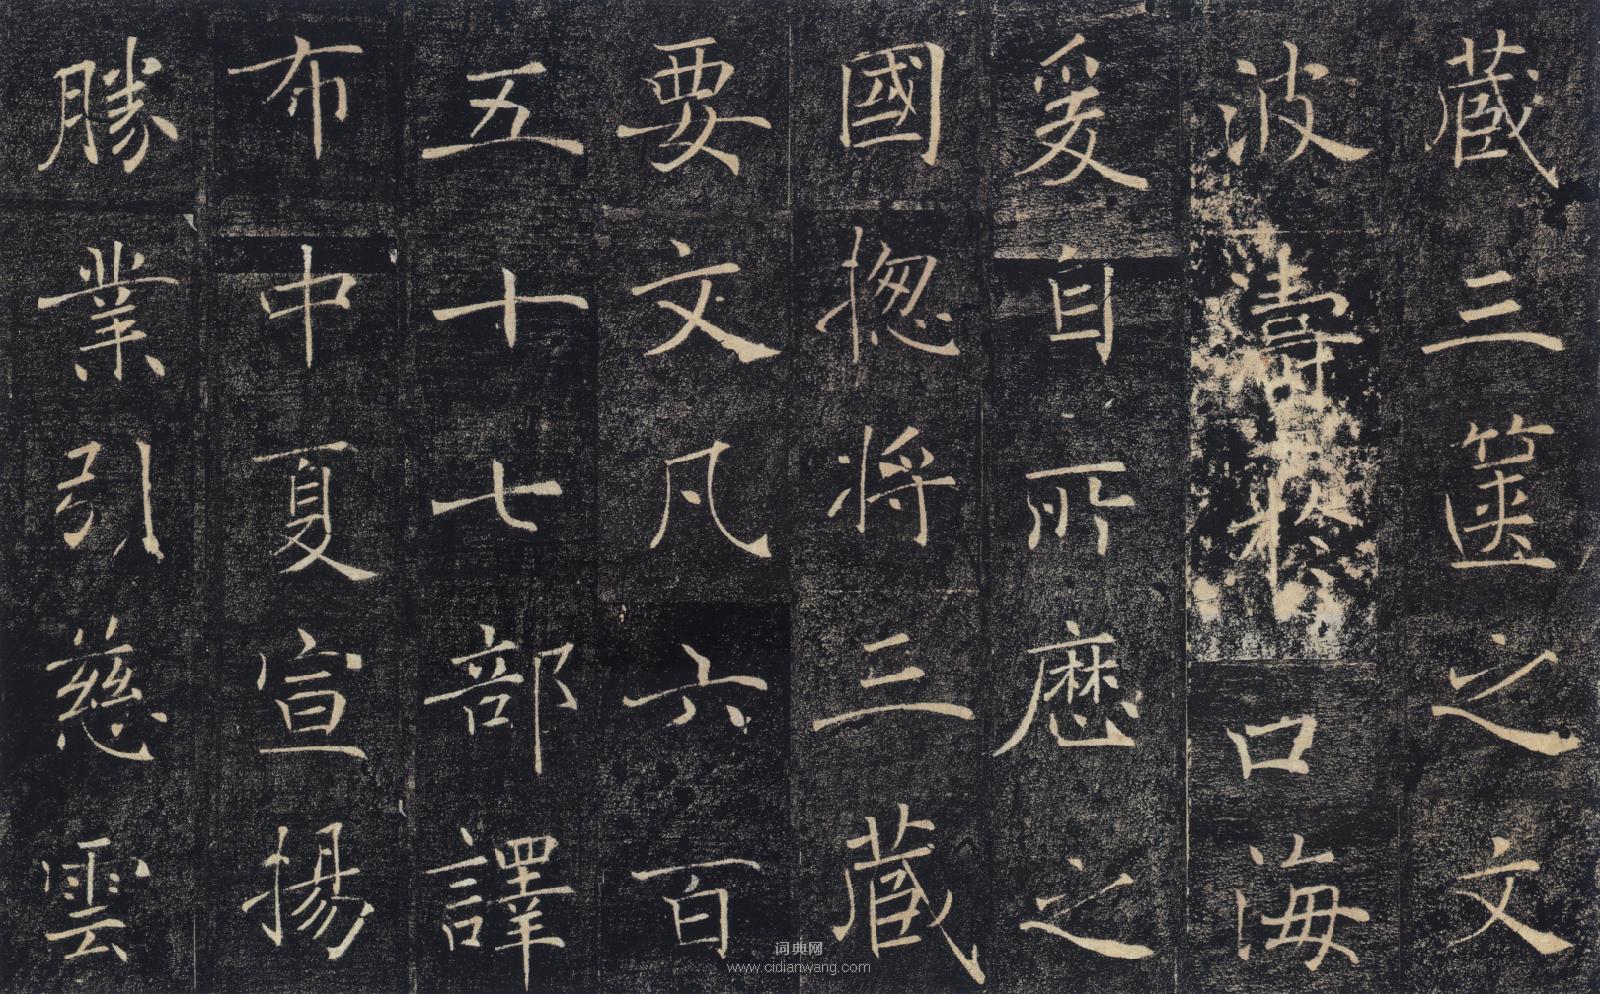 藏三篋之文
波濤於口海
爰自所歷之
國揔將三藏
要文凡六百
五十七部譯
布中夏宣揚
勝業引慈雲
词典网
www.cidianwang.com